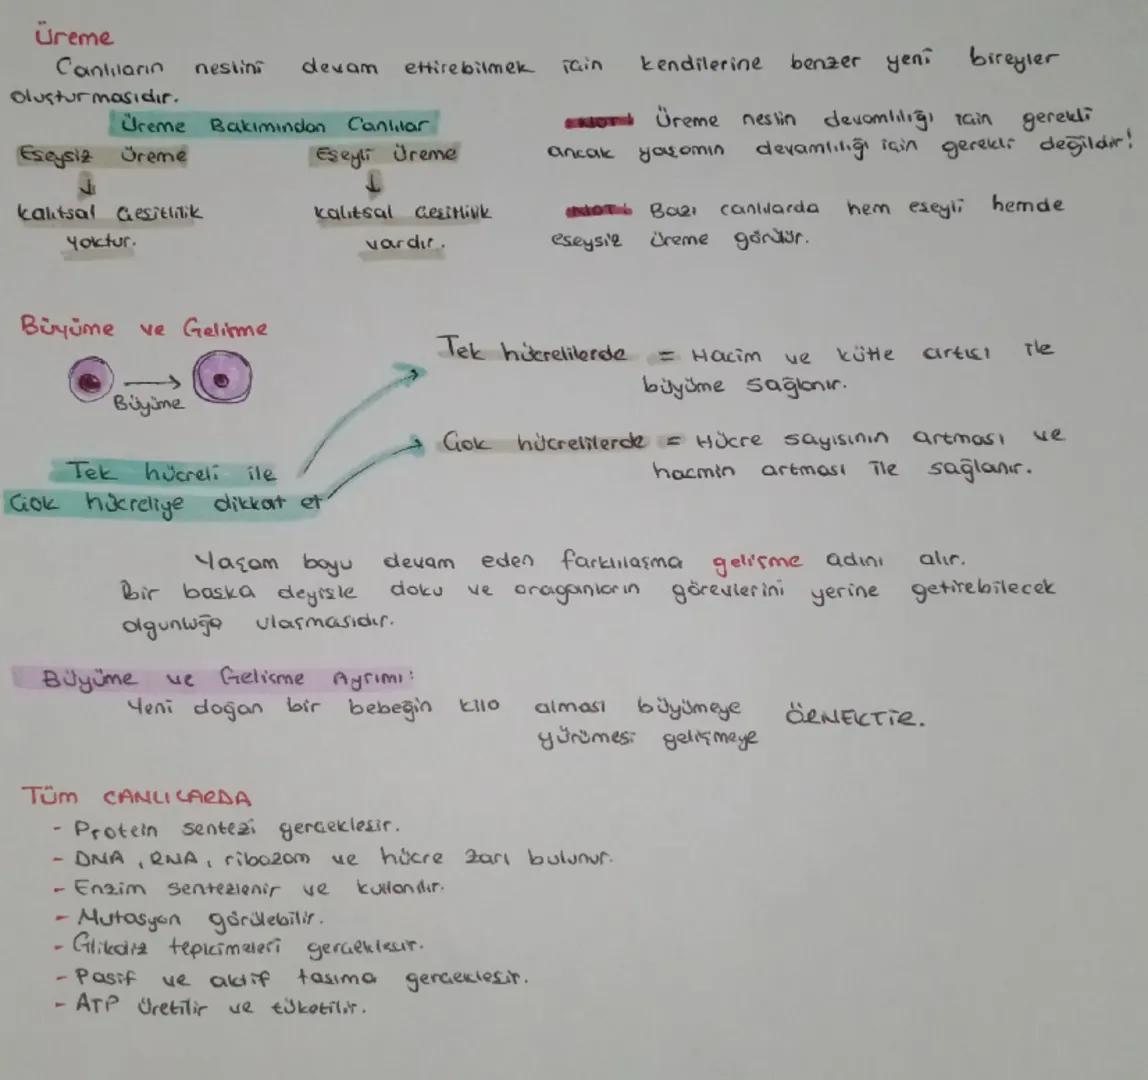 Üreme
Canlıların neslini devam ettirebilmek için kendilerine benzer yeni bireyler
oluşturmasıdır.
Üreme Bakımından Canlılar
Eseysiz Üreme
kalıtsal Çeşitlilik
yoktur.
Eşeyli Üreme
kalıtsal Çeşitlilik
vardır.
NOT: Üreme neslin devamlılığı için gerekli
ancak yaşamın devamlılığı için gerekli değildir!
NOT: Bazı canlılarda hem eseyli hemde
eseysiz üreme görülür.
Büyüme ve Gelişme
Büyüme
Tek hücreli ile
Çok hücreliye dikkat et
Tek hücrelilerde = Hacim ve kütle artışı ile
büyüme sağlanır.
Çok hücrelilerde = Hücre sayısının artması ve
hacmin artması ile sağlanır.
Yaşam boyu devam eden farklılaşma gelişme adını alır.
Bir başka deyişle doku ve oraganların görevlerini yerine getirebilecek
olgunluğa ulaşmasıdır.
Büyüme ve Gelişme Ayrımı:
Yeni doğan bir bebeğin kilo alması büyümeye
yürümesi gelişmeye
ÖRNEKTİR.
Tüm CANLILARDA
- Protein sentezi gerçekleşir.
- DNA, RNA, ribozom ve hücre zarı bulunur.
- Enzim sentezlenir ve kullanılır.
- Mutasyon görülebilir.
- Glikoliz tepkimeleri gerçekleşir.
- Pasif ve aktif taşıma gerçekleşir.
- ATP üretilir ve tüketilir.